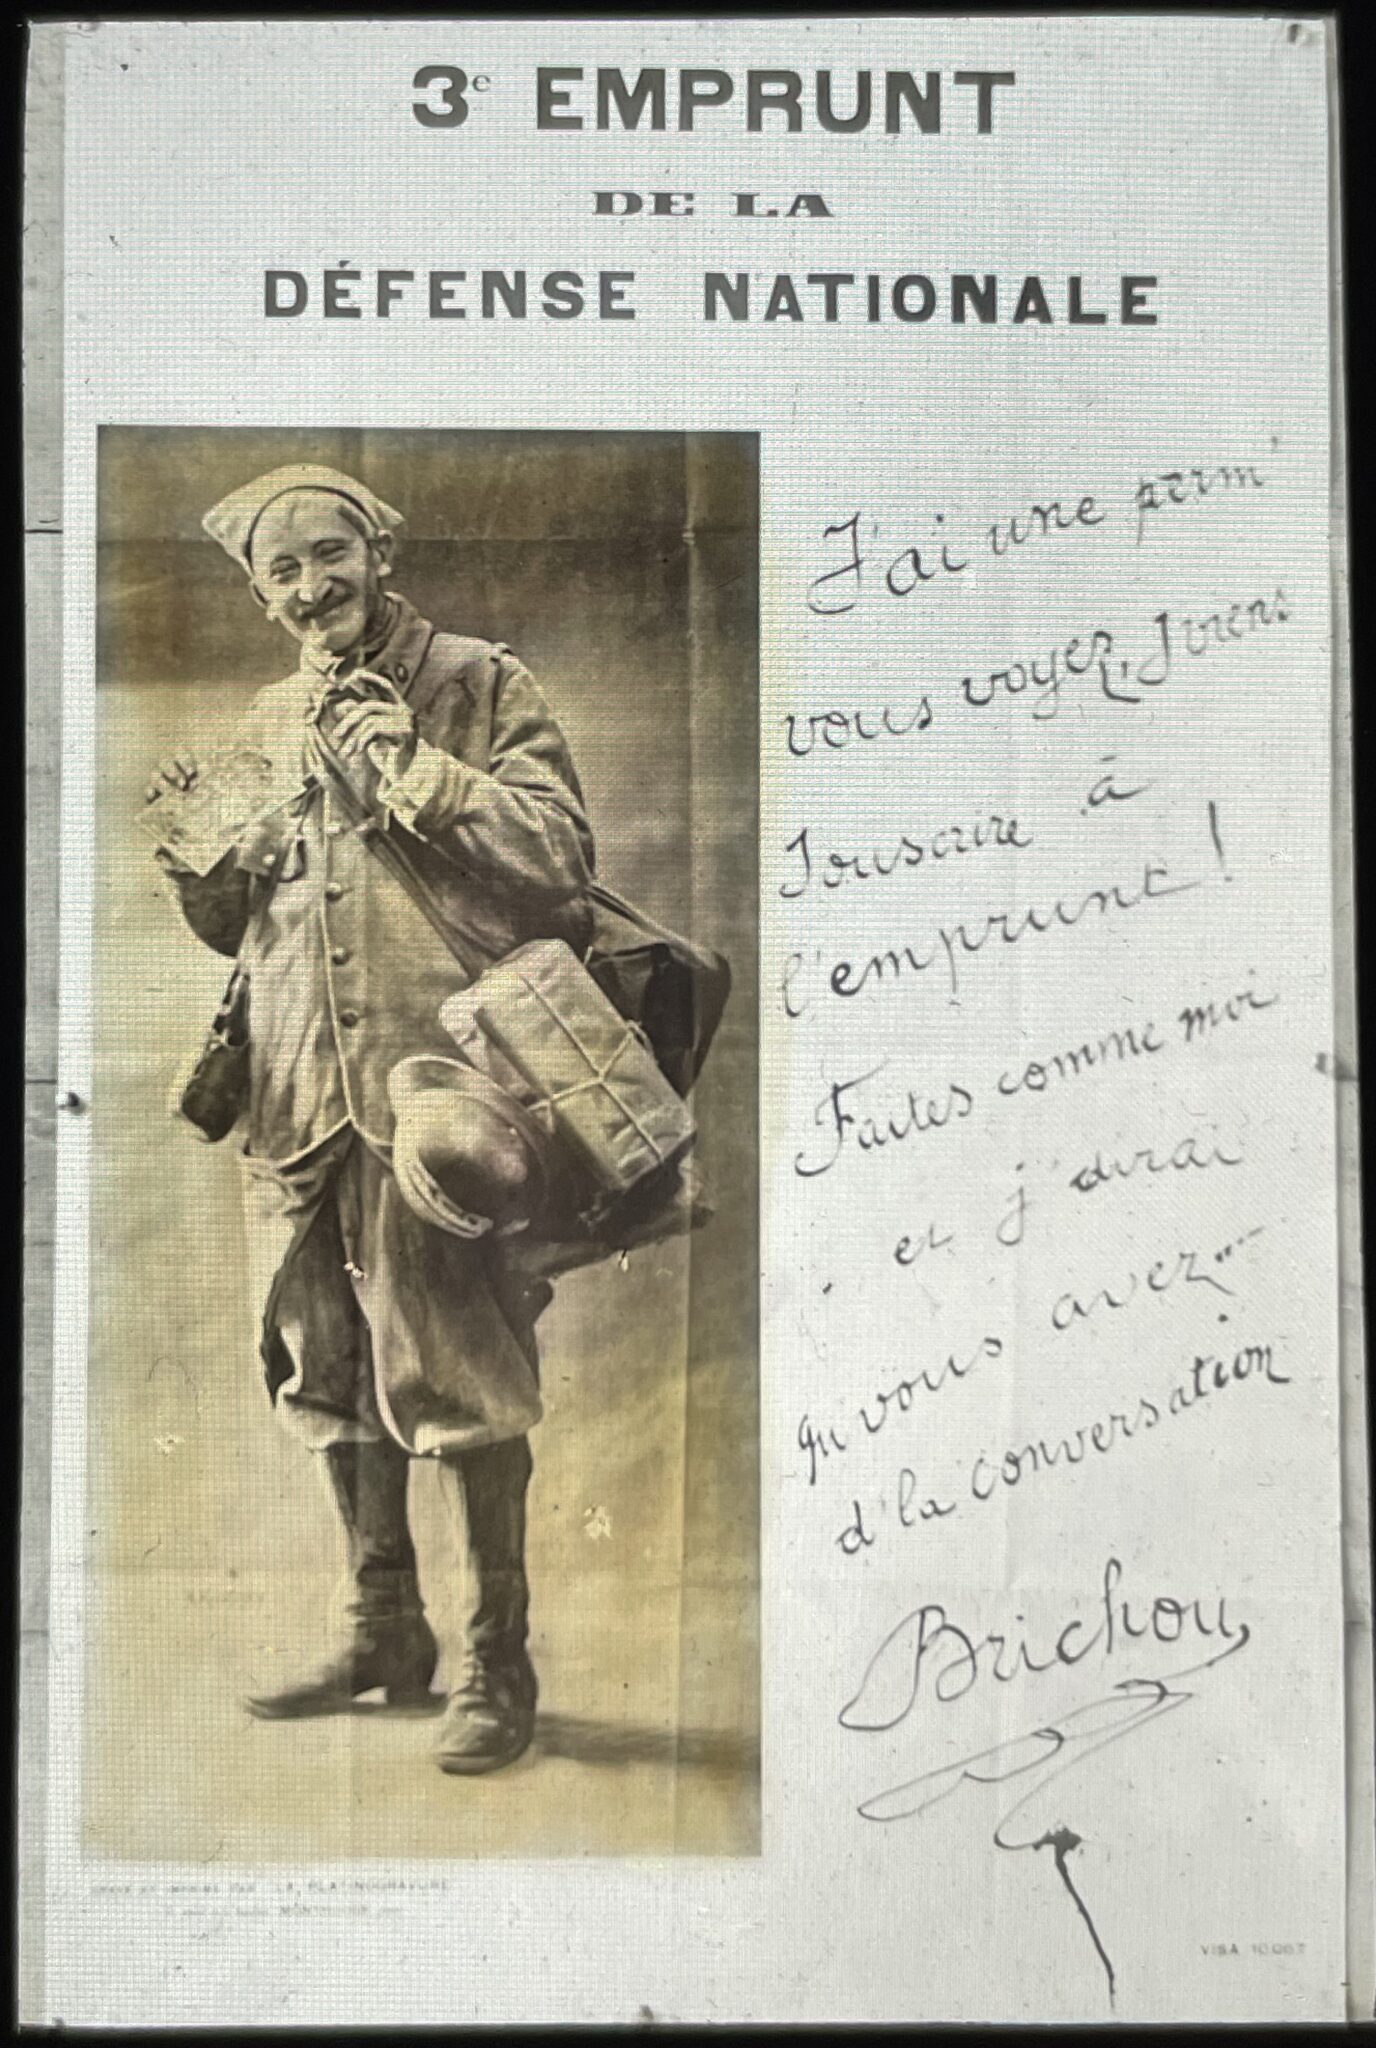 3e EMPRUNT
DE LA
DÉFENSE NATIONALE
J'ai une perm'
vous voyez, j viens
souscrire à
l'emprunt !
Faites comme moi
et j' dirai
qu' vous avez...
d' la conversation
Brichou
LA PLATINOGRAVURE
VISA